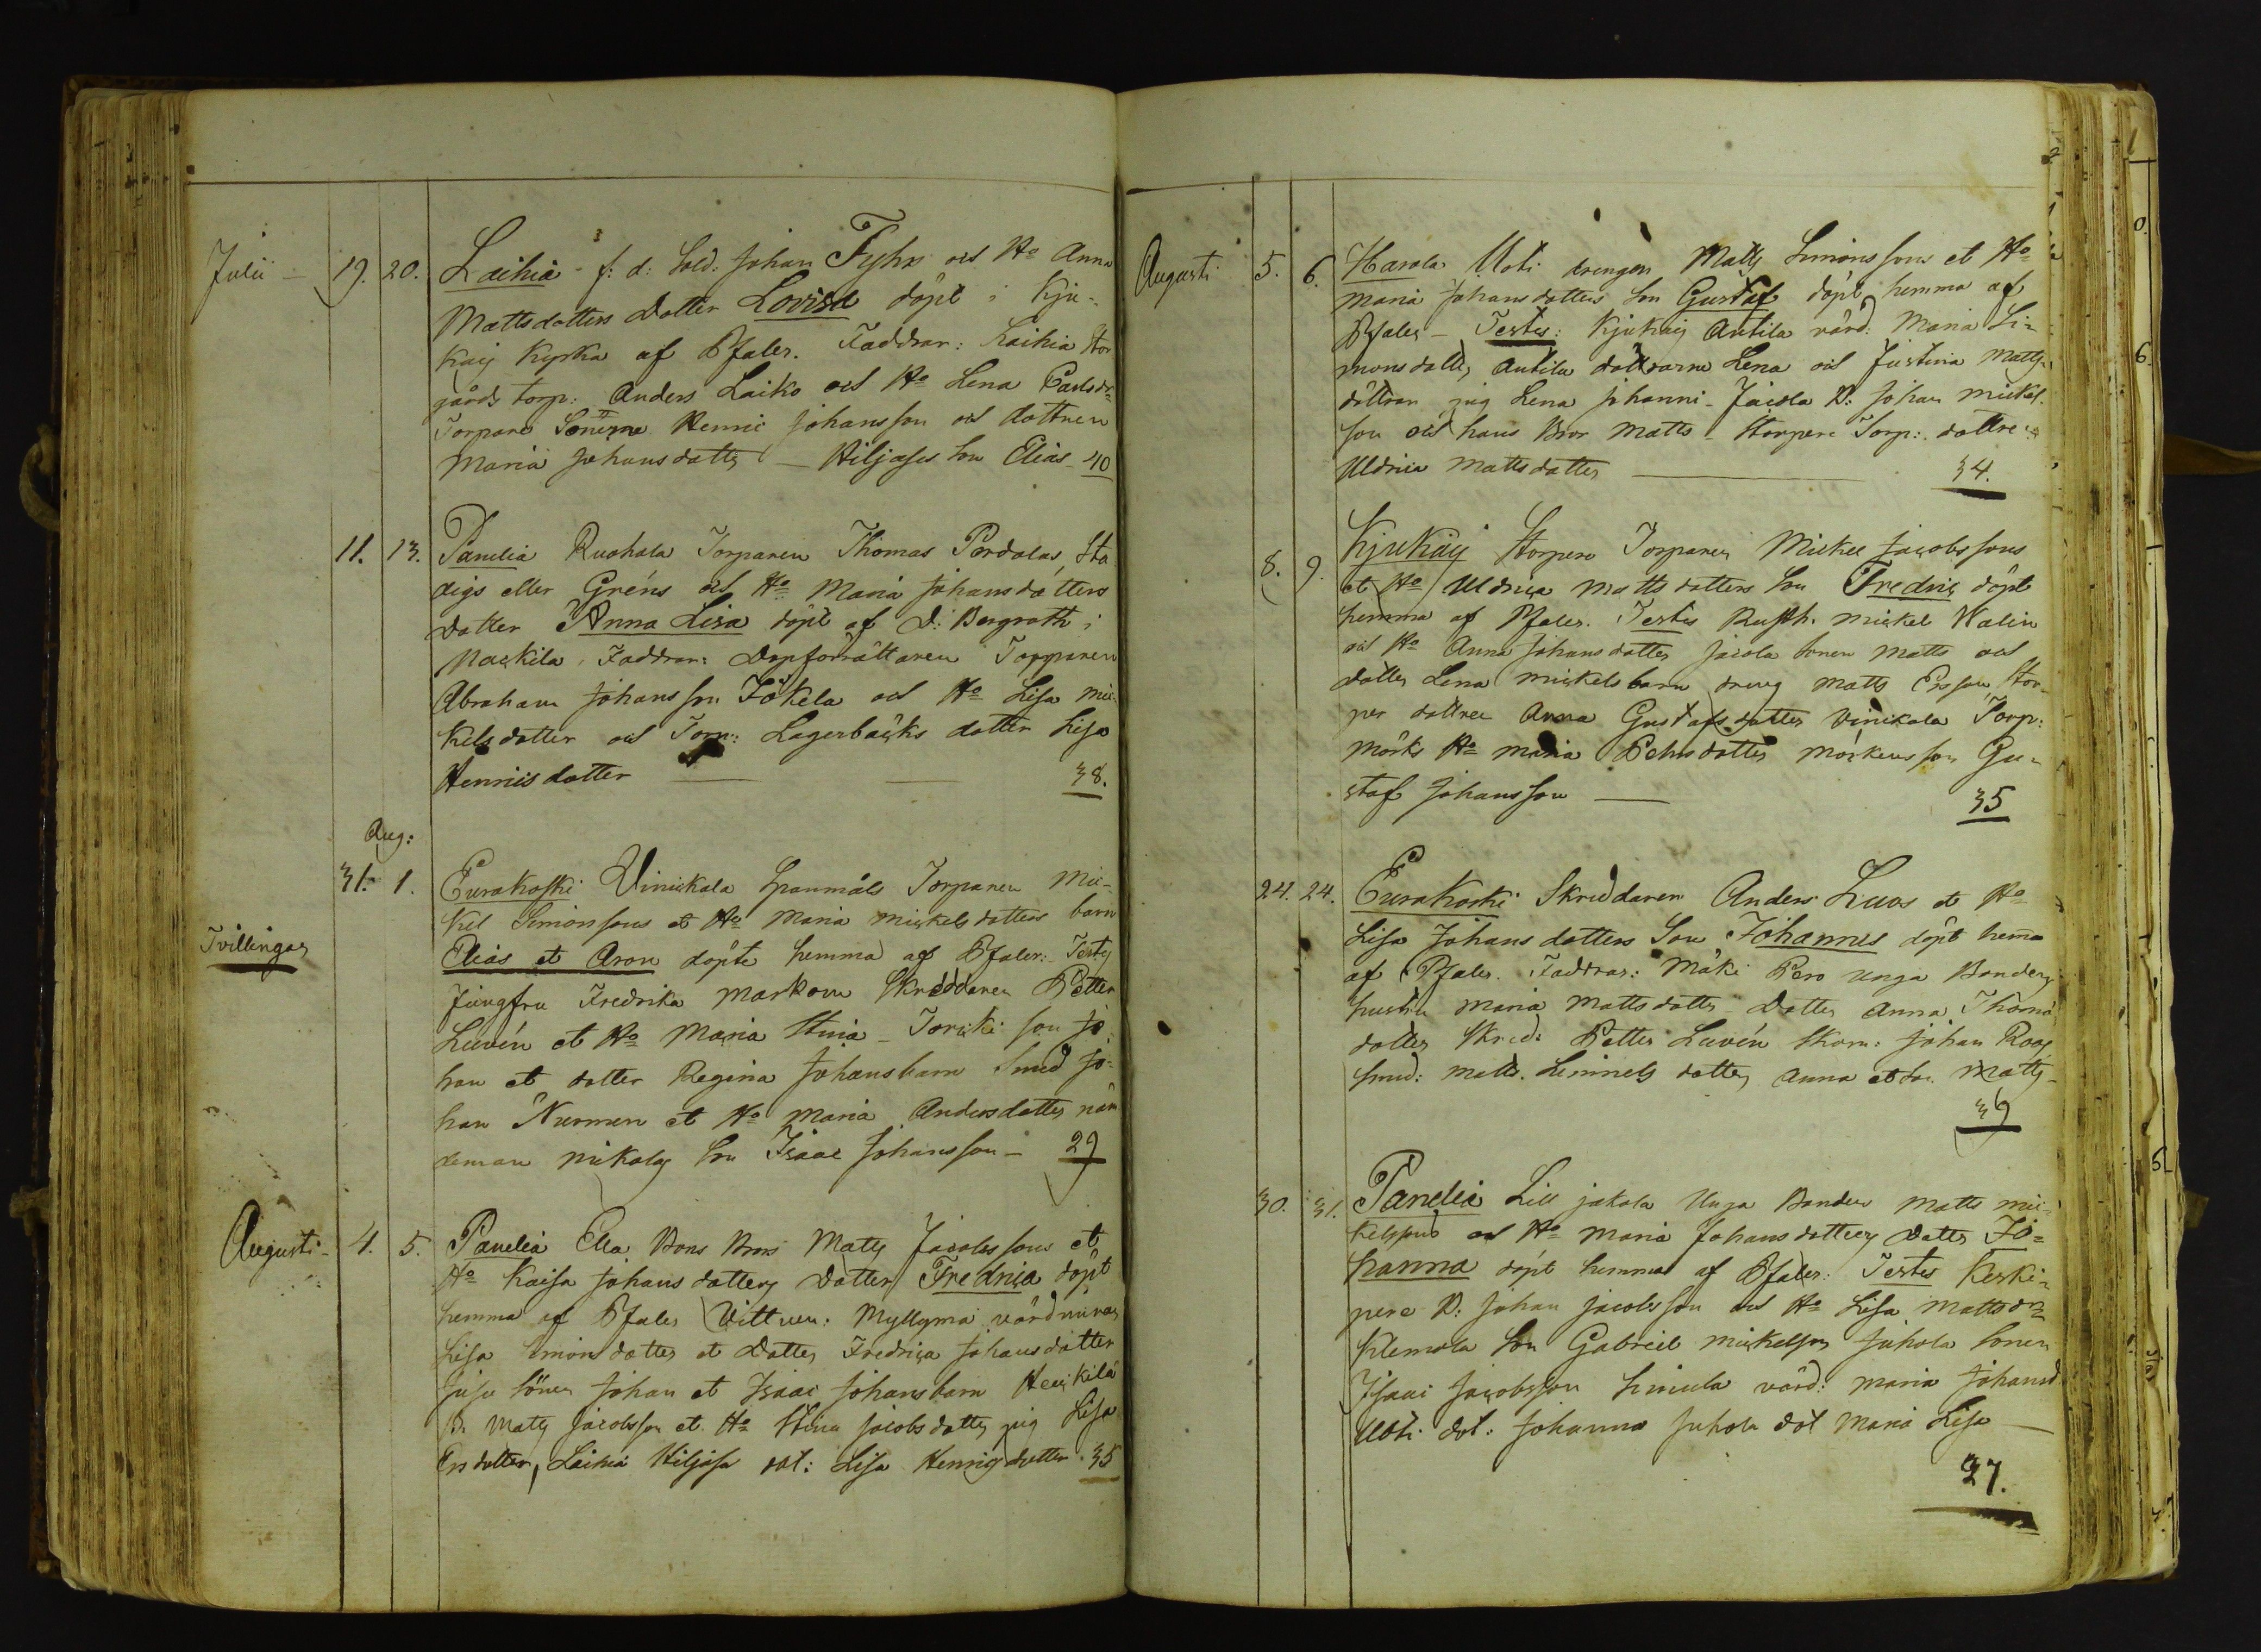 Julii 19. 20. Laihia f: d: Sold: Johan Fyhr och Ho Anna
Mattsdotters Dotter Lovisa döpt i Kju-
kais Kyrka af BJaler. Faddrar: Laihia Stor
gårds torp: Anders Laiko och Ho Lena Carlsdr
Torpare Henric Johansson och dottren
Maria Johansdotter Hiljases Son Elias 40
11. 13. Panelia Ruohola Torparen Thomas Pordalas, Sta
digs eller Gréns och Ho Maria Johansdotters
Dotter Anna Lisa döpt af D: Bergroth i
Naskila. Faddrar: Dopförrättaren Torparen
Abraham Johansson Jokela och Ho Lisa Mic-
kelsdotter och Torp: Lagerbäcks dotter Lisa
Hennisdotter 38.
Aug:
31. 1. Eurakoski Vinikala Spanmåls Torparen Mic-
kel Simonssons et Ho Maria Mickelsdotters barn
Tvillingar
Elias et Aron döpte hemma af BJaler. Testes
Jungfru Fredrika Skreddaren Petter
Luvén et Ho Maria Stina Torcki son Jo-
han et dotter Regina Johansbarn Smed Jo-
han Nurmen et Ho Maria Andersdotter näm
deman Nikolas Son Isaac Johansson 29
Augusti 4. 5. Panelia Ella Bons Bror Matts Jacobssons et
Ho Kaisa Johansdotters Dotter Fredrica döpt
hemma af BJaler Vittnen: Myllymä värdinnan
Lisa Simonsdotter et Dotter Fredrica Johansdotter
Juju Söner Johan et Isaac Johansbarn Heickilä
B: Matts Jacobsson et Ho Stina Jacobsdotter pig Lisa
Ersdotter, Laihia Hiljasa dot: Lisa Henrigsdotter 35
Augusti 5. 6. Harola Uoti drengen Matts Simonssons et Ho
Maria Johansdotters Son Gustaf döpt hemma af
BJaler Testes: Kjukais Antila värd: Maria Si-
monsdotter, Antila dottrarne Lena och Justina Matts-
döttrar pig Lena Johanni Jacola B: Johan Mickel-
son och hans Bror Matts Storpere Torp: dottren
Uldrica Mattsdotter 34.
8. 9. Kjukais Storpere Torparen Mickel Jacobssons
et Ho Uldrica Mattsdotters Son Fredric döpt
hemma af BJaler. Testes Rusth. Mickel Walin
och Ho Anna Johansdotter Jacola Sonen Matts och
dotter Lena Mickelsbarn dreng Matts Ersson Stor-
per dottren Anna Gustafsdotter Vinikala Torp:
Mörks Ho Maria Pehrsdotter Mörkens son Gu-
staf Johansson 35
24. 24. Eurakoski Skreddaren Anders Luvs et Ho
Lisa Johansdotters Son Johannes döpt hemma
af BJaler. Faddrar: Mäki Pero unga Bondens
hustru Maria Mattsdotter Dotter Anna Thoma
dotter Skred: Petter Luvén Skom: Johan Roos
Smed: Matts. Limnels dotter Anna et son Matts
39
30. 31. Panelia Lill jakola Unga Bonden Matts Mic-
kelssons och Ho Maria Johansdotters Dotter Jo-
hanna döpt hemma af BJaler. Testes Keski-
pere B: Johan Jacobsson och Ho Lisa Mattsdr
Klemola Son Gabriel Mickelsson Juhola Sonen
Isaac Jacobsson Simula värd: Maria Johansd
Uoti dot: Johanna Juhola dot Maria Lisa
27.